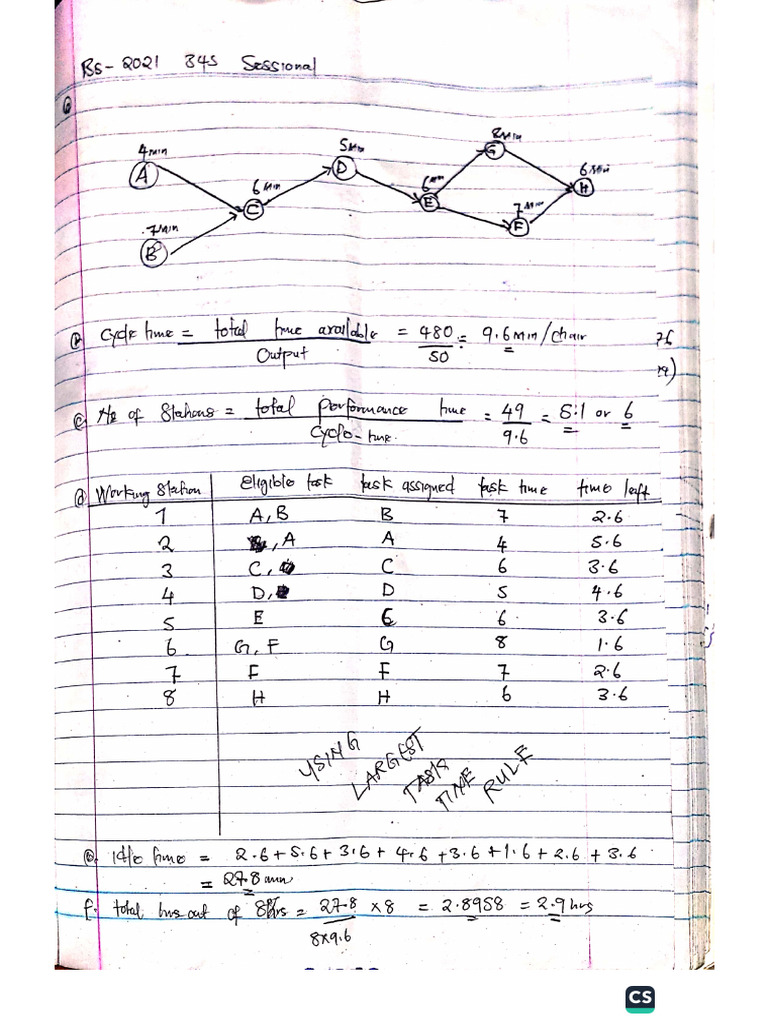 BS-2021 34S Sessional
a
4min
A
.7min
B
6 Min
C
5Min
D
6min
E
8Min
G
7 Min
F
6 Min
H
b, Cycle time = total time available = 480 = 9.6 min/chair
Output 50
76
c, No of Stations = total performance time = 49 = 5.1 or 6
Cycle-time. 9.6
d, Working Station Eligible task task assigned task time time left
1 A, B B 7 2.6
2 , A A 4 5.6
3 C, C 6 3.6
4 D, D 5 4.6
5 E E 6 3.6
6 G, F G 8 1.6
7 F F 7 2.6
8 H H 6 3.6
USING
LARGEST
TASK
TIME
RULE
Idle time = 2.6+5.6+3.6+4.6+3.6+1.6+2.6+3.6
= 27.8 min
f. total hrs out of 8hrs = 27.8 x8 = 2.8958 = 2.9 hrs
8x9.6
CS